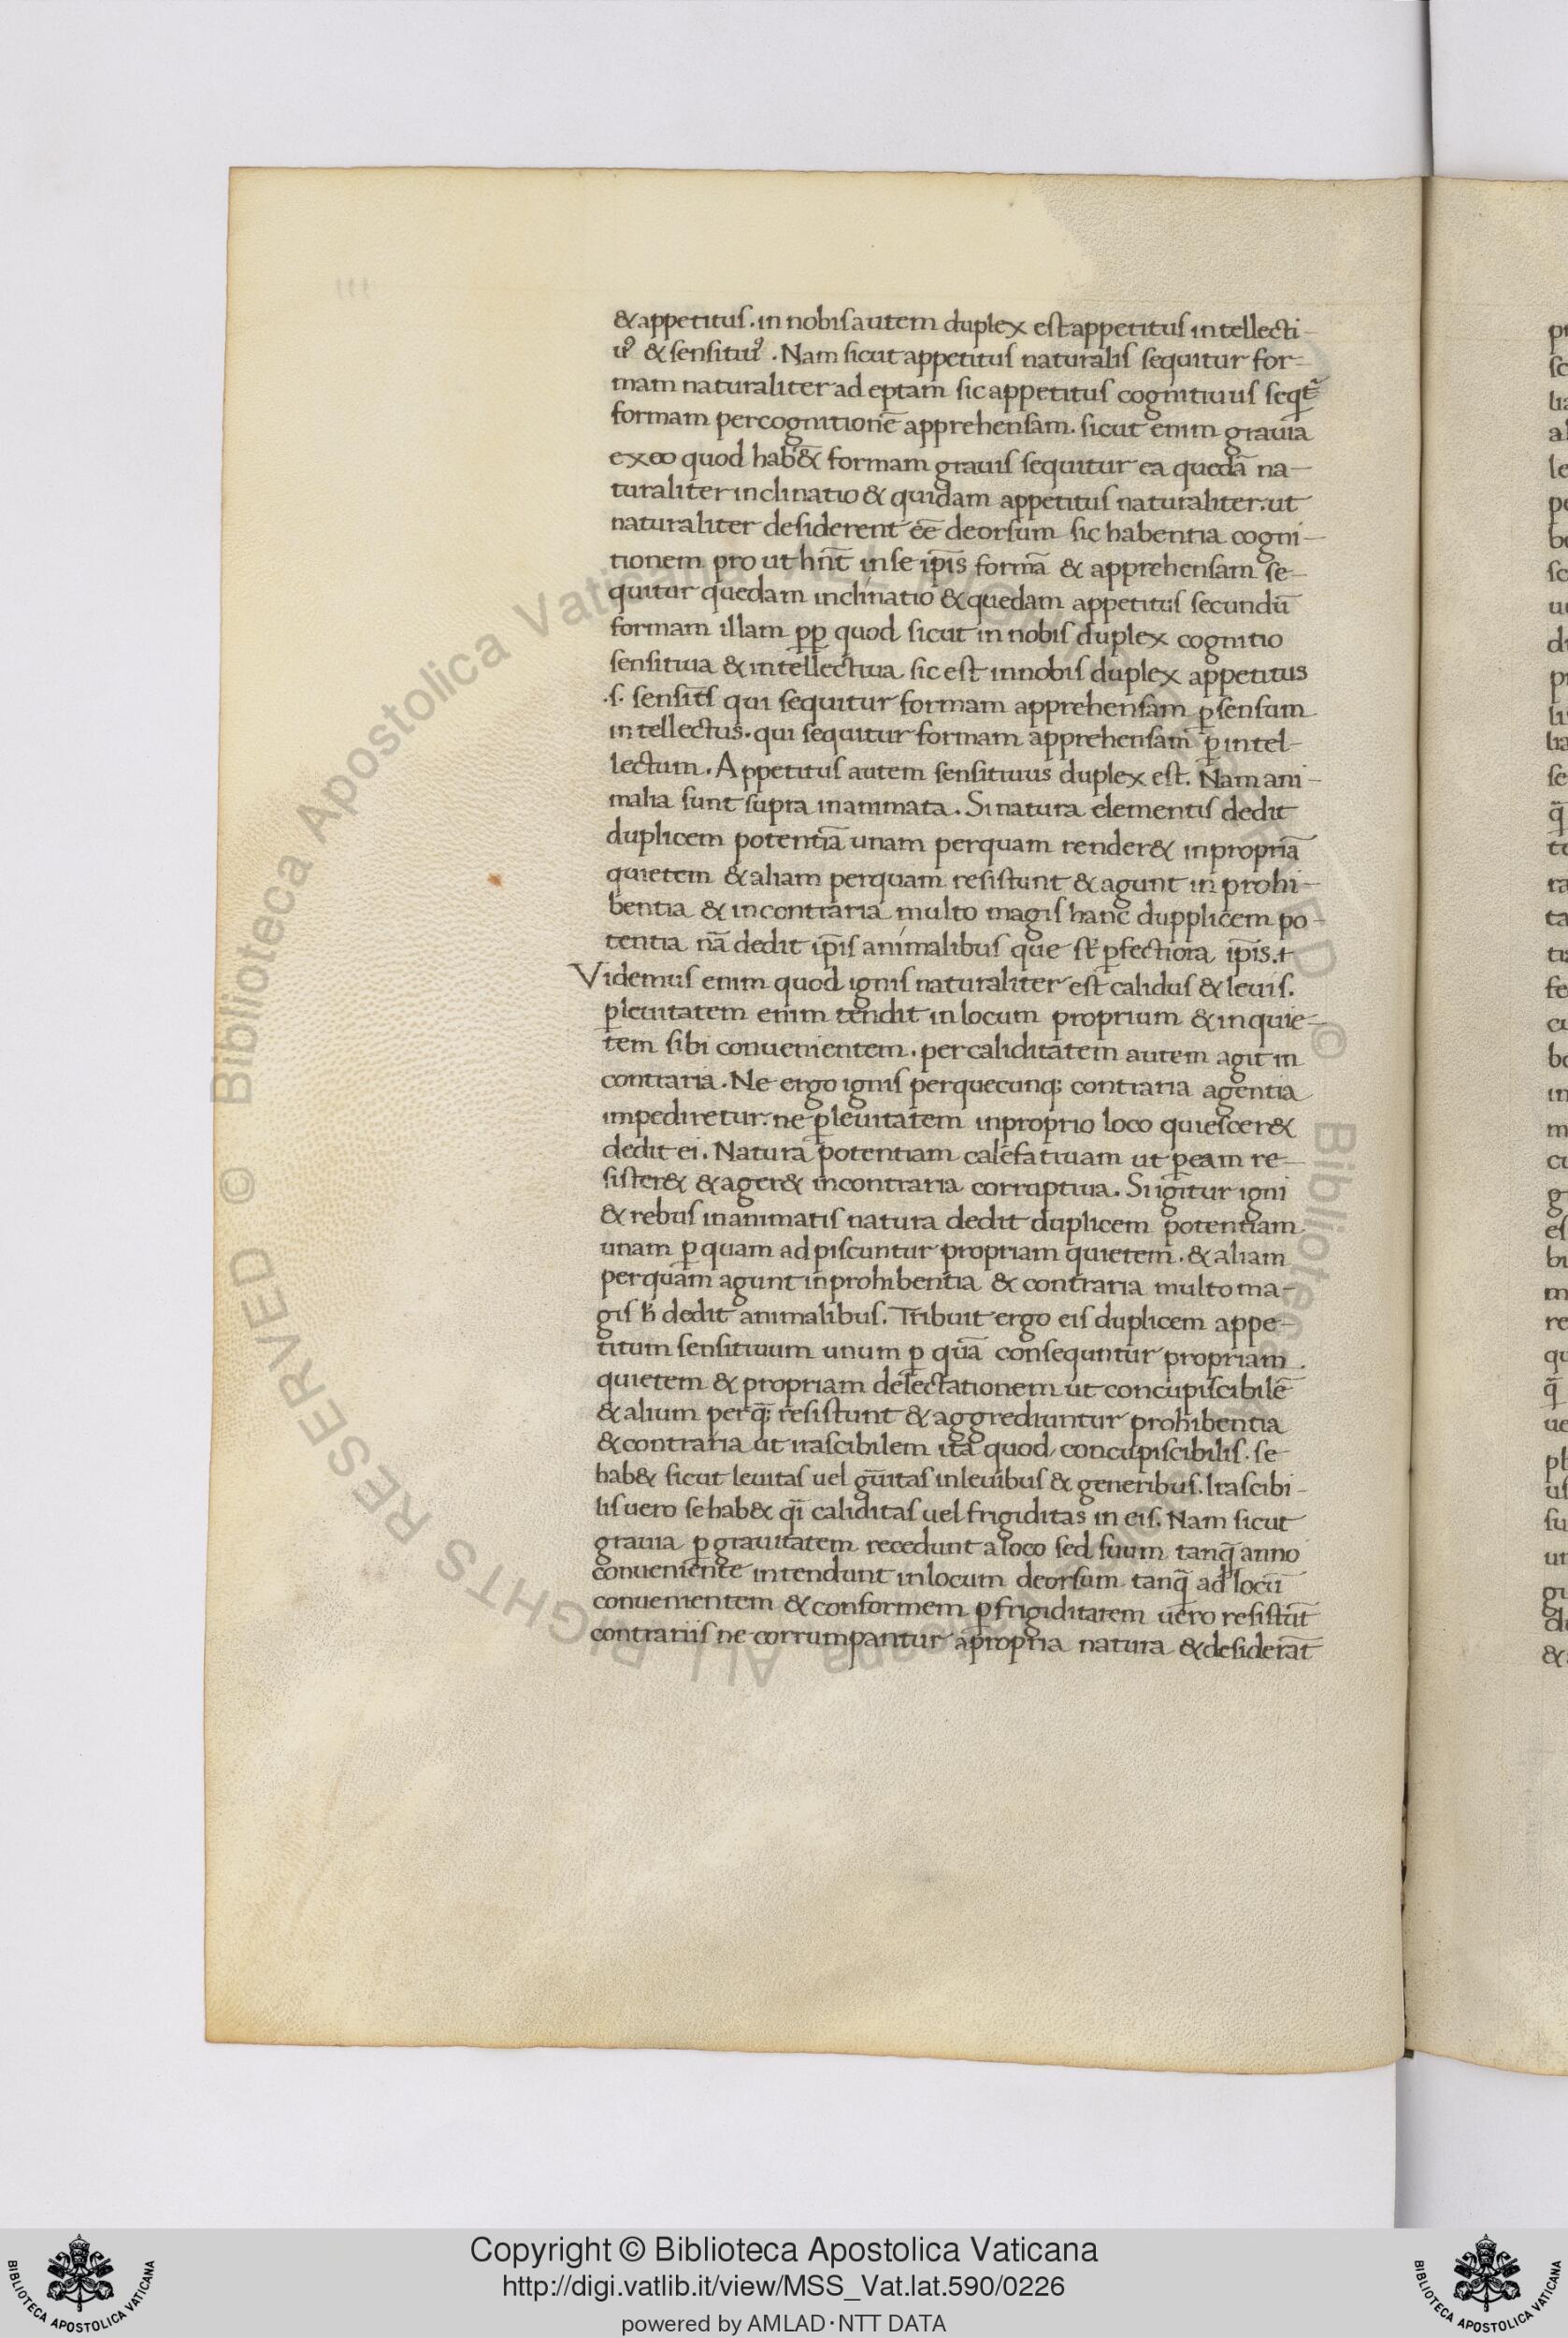 & appetitus. in nobis autem duplex est appetitus intellecti-
uꝰ & sensitiuꝰ. Nam sicut appetitus naturalis sequitur for-
mam naturaliter ad eptam sic appetitus cognitiuus seqt̃
formam per cognitionē apprehensam. sicut enim grauia
ex eo quod hab& formam grauis sequitur ea quedā na-
turaliter inclinatio & quidam appetitus naturaliter. ut
naturaliter desiderent eē deorsum sic habentia cogni-
tionem pro ut hñt in se ip̄is formā & apprehensam se-
quitur quedam inclinatio & quedam appetitus secundū
formam illam ꝓp quod sicut in nobis duplex cognitio
sensitiua & intellectiua sic est in nobis duplex appetitus
.s. sensit̄s qui sequitur formam apprehensam ꝑ sensum
intellectus. qui sequitur formam apprehensam ꝑ intel-
lectum. Appetitus autem sensitiuus duplex est. Nam ani-
malia sunt supra inanimata. Si natura elementis dedit
duplicem potentiā unam per quam render& in propriā
quietem & aliam per quam resistunt & agunt in prohi-
bentia & in contraria multo magis hanc dupplicem po-
tentia nā dedit ip̄is animalibus que st̄ ꝑfectiora ip̄is.
Videmus enim quod ignis naturaliter est calidus & leuis.
ꝑ leuitatem enim tendit in locum proprium & in quie-
tem sibi conuenientem. per caliditatem autem agit in
contraria. Ne ergo ignis per quecunq; contraria agentia
impediretur. ne ꝑ leuitatem in proprio loco quiescer&
dedit ei. Natura potentiam calefatiuam ut ꝑ eam re-
sister& & ager& in contraria corruptiua. Si igitur igni
& rebus inanimatis natura dedit duplicem potentiam
unam ꝑ quam ad piscuntur propriam quietem. & aliam
per quam agunt in prohibentia & contraria multo ma-
gis h̄ dedit animalibus. Tribuit ergo eis duplicem appe-
titum sensitiuum unum ꝑ quā consequntur propriam
quietem & propriam delectationem ut concupiscibilē
& alium per q̄; resistunt & aggrediuntur prohibentia
& contraria ut irascibilem ita quod concupiscibilis. se
hab& sicut leuitas uel gūitas in leuibus & generibus. Irascibi-
lis uero se hab& q̄i caliditas uel frigiditas in eis. Nam sicut
grauia ꝑ grauitatem recedunt a loco sed suum tanq̄ anno
conueniente intendunt in locum deorsum tanq̄ ad locū
conuenientem & conformem ꝑ frigiditatem uero resistūt
contrariis ne corrumpantur a propria natura & desiderāt
Copyright © Biblioteca Apostolica Vaticana
http://digi.vatlib.it/view/MSS_Vat.lat.590/0226
powered by AMLAD·NTT DATA
BIBLIOTECA APOSTOLICA VATICANA
BIBLIOTECA APOSTOLICA VATICANA